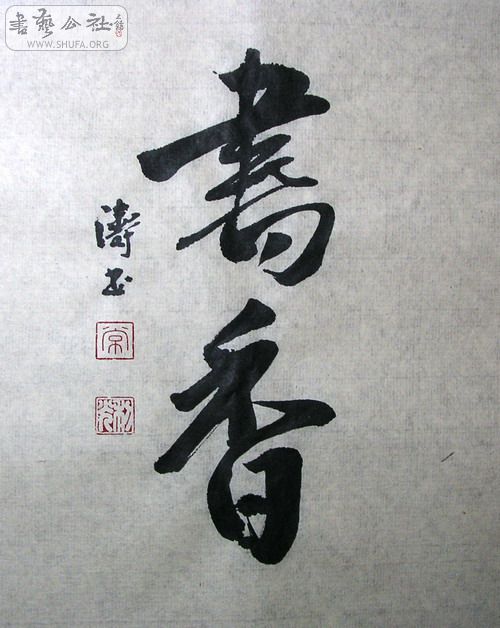 書藝公社
WWW.SHUFA.ORG
書香
濤書